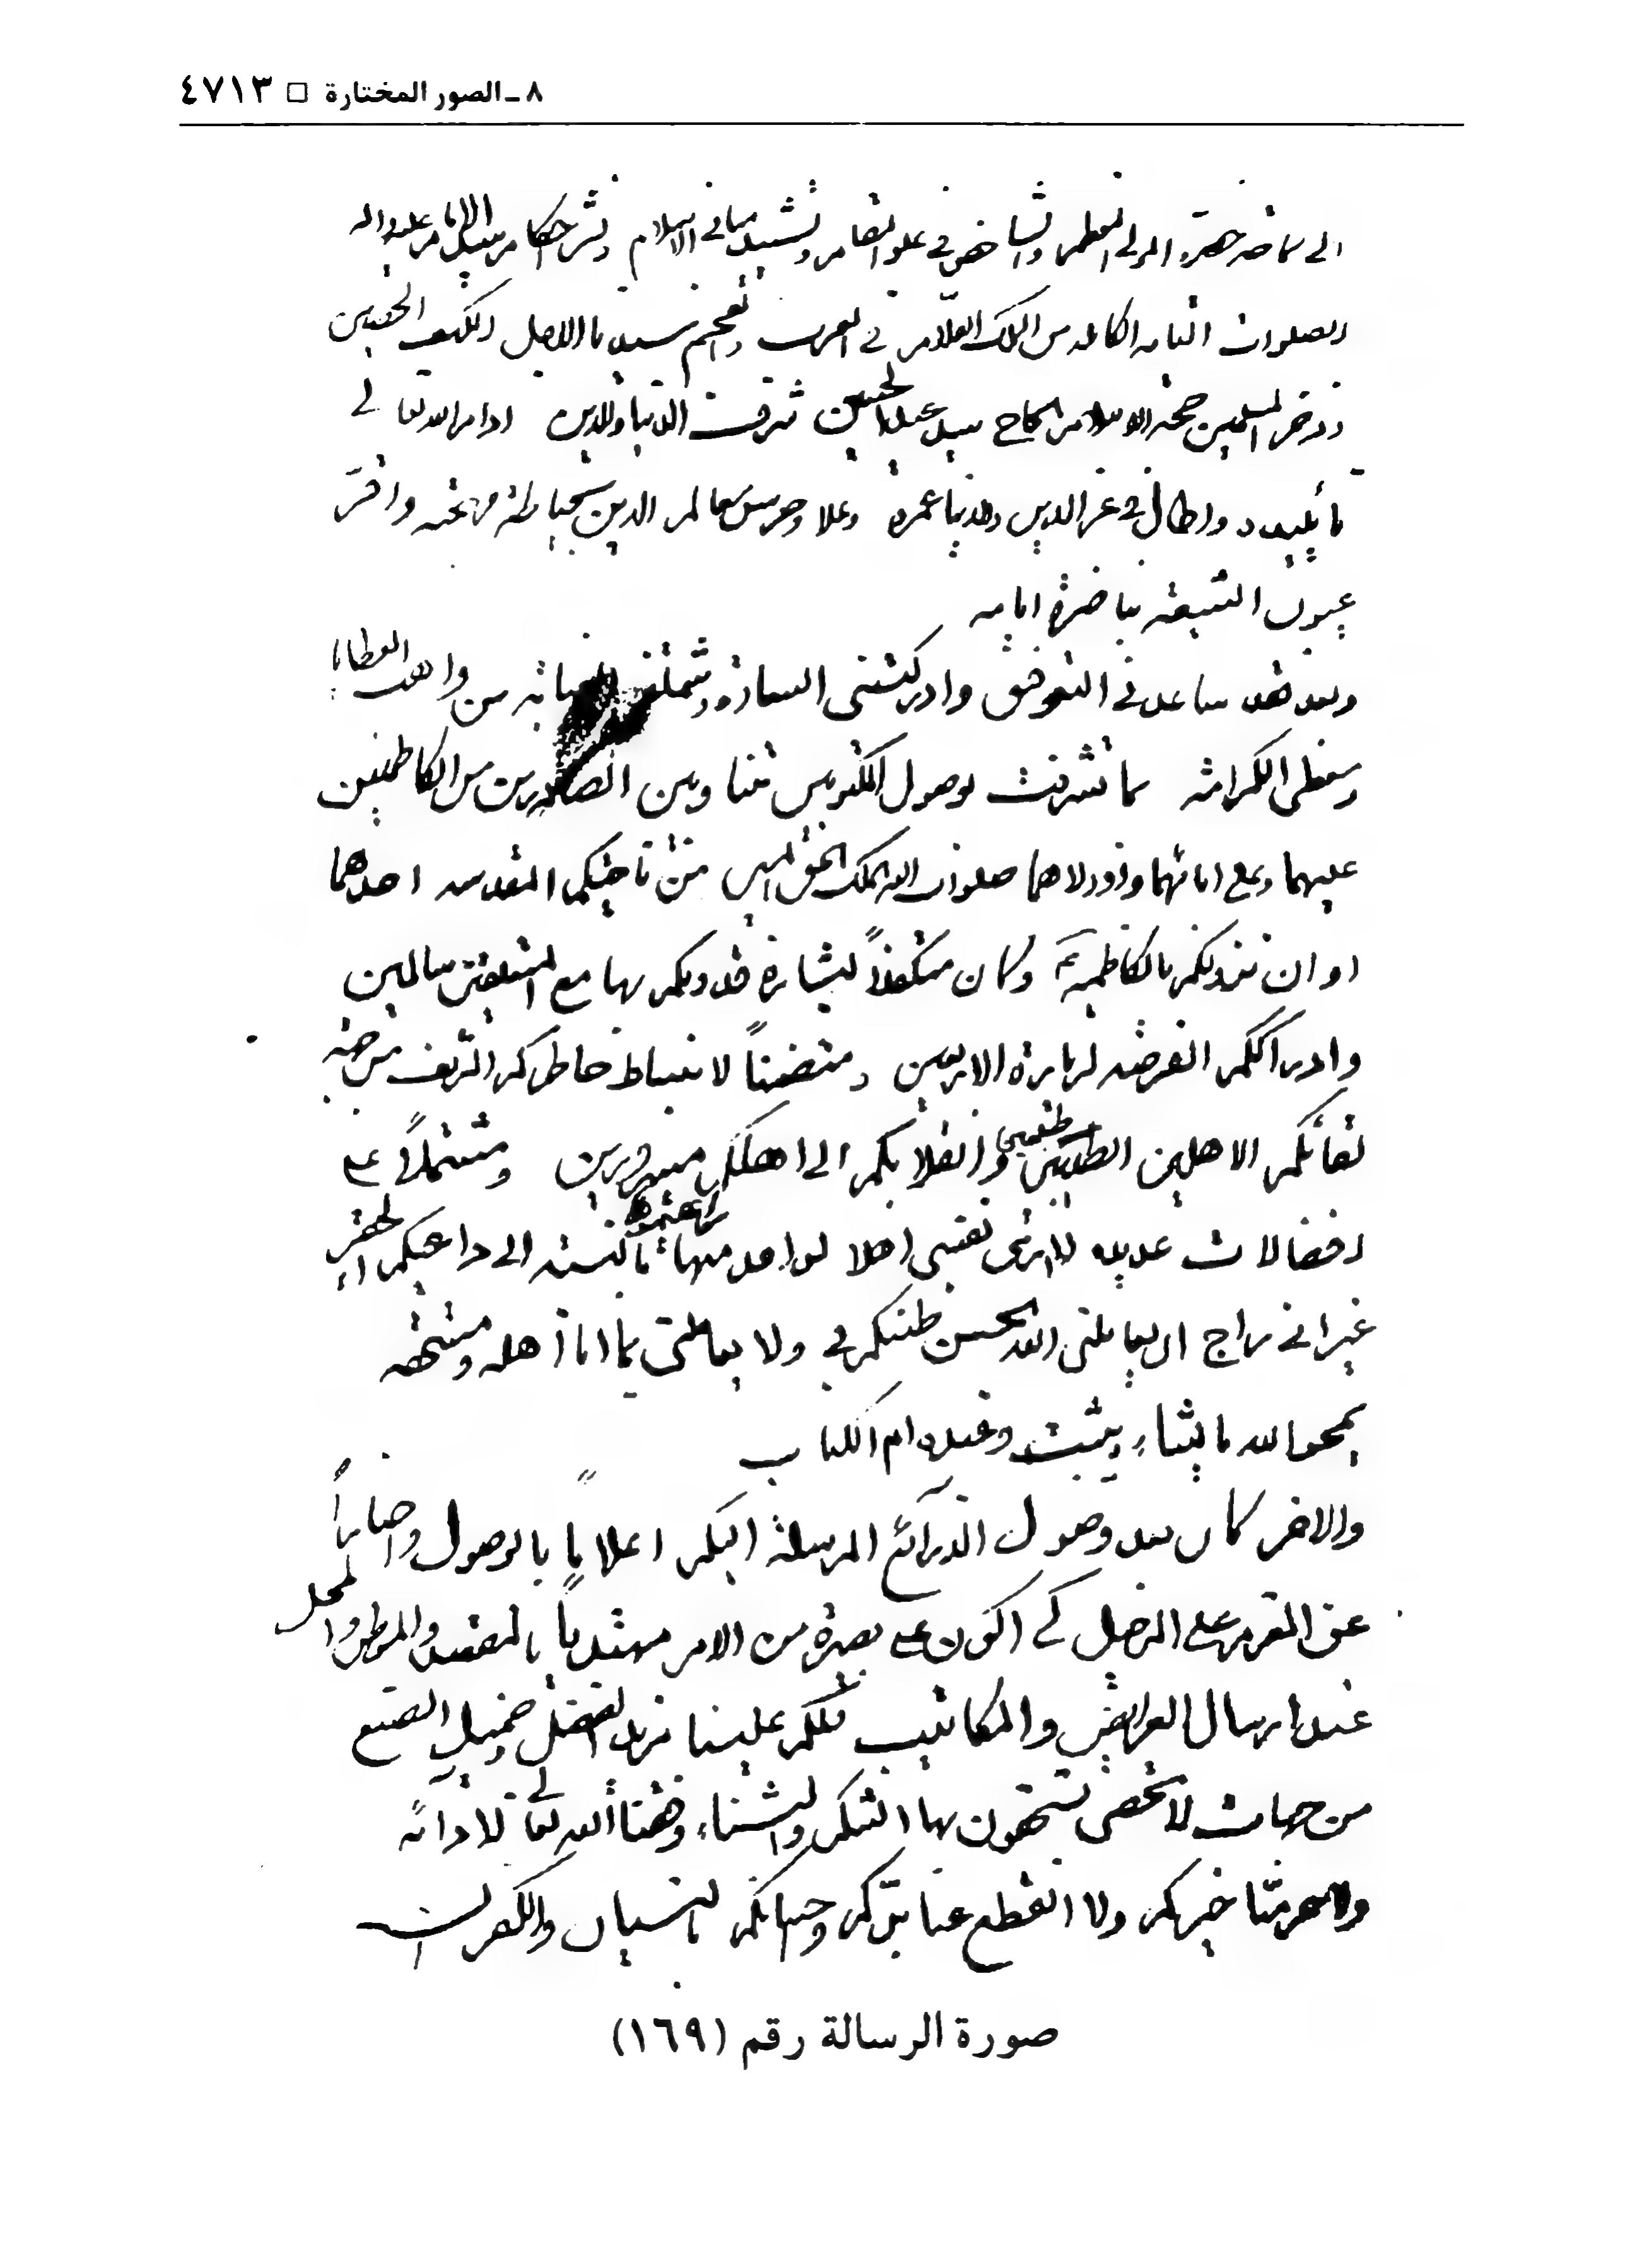 ٨ ـ الصور المختارة □ ٤٧١٣
الى سماحة حضرة المولى المعظم والشاخص في علو المقام وتشييد مباني الاسلام ونشر احكام سيد الانام عليه واله
الصلوات التامه الكامله من الملك العلام في العرب والعجم سيدنا الاجل الكهف الحصين
وذخر المسلمين حجة الاسلام الحاج سيد عبد الحسين شرف الدنيا والدين ادام الله تعالى
تأييده واطال في عز الدين والدنيا عمره وعلاه وحرس معالم الدين بحياطته واقر
عيون الشيعة بناضرة ايامه
وبعد فقد ساعدني التوفيق وادركتني السعادة وشملتني العناية من واهب العطايا
ومعطي الكرامة بما تشرفت بوصول المكتوبين بيننا وبين الصادرين من الكاظمين
عليهما وعلى ابائهما واولادهما صلوات الله الملك الحق المبين من ناحيتكم المقدسه احدهما
اوان نزولكم بالكاظمية وكان متكفلاً لبشارة قدومكم بها مع المتعلقين سالمين
وادراككم الفرصه لزيارة الاربعين ومتضمناً لانبساط خاطركم الشريف من جهة
لقائكم الاهلين الطيبين وانقلابكم الى اهلكم مسرورين ومشتملاً على
افضالات عديده لا ارى نفسي اهلا لواحد منها بالنسبة الى داعيكم الحقير
غير اني راج ان يعاملني الله بحسن ظنكم في ولا يعاملني بما انا اهله ومستحقه
يمحو الله ما يشاء ويثبت وعنده ام الكتاب
والاخر كان بعد وصول الذرائع المرسلة اليكم اعلاماً بالوصول واخباراً
عن العزم على الرحيل كي اكون على بصيرة من الامر مهتدياً بالمقصد والمرام والمحل
عند ارسال العرايض والمكاتيب فلكم علينا مزيد الفضل وجميل الصنع
من جهات لا تحصى تستحقون بها الشكر والثناء وفقنا الله تعالى لادائه
ولا حرمنا خيركم ولا انقطع عنا بركم وحسانكم بالنسيان والكفران
صورة الرسالة رقم (١٦٩)